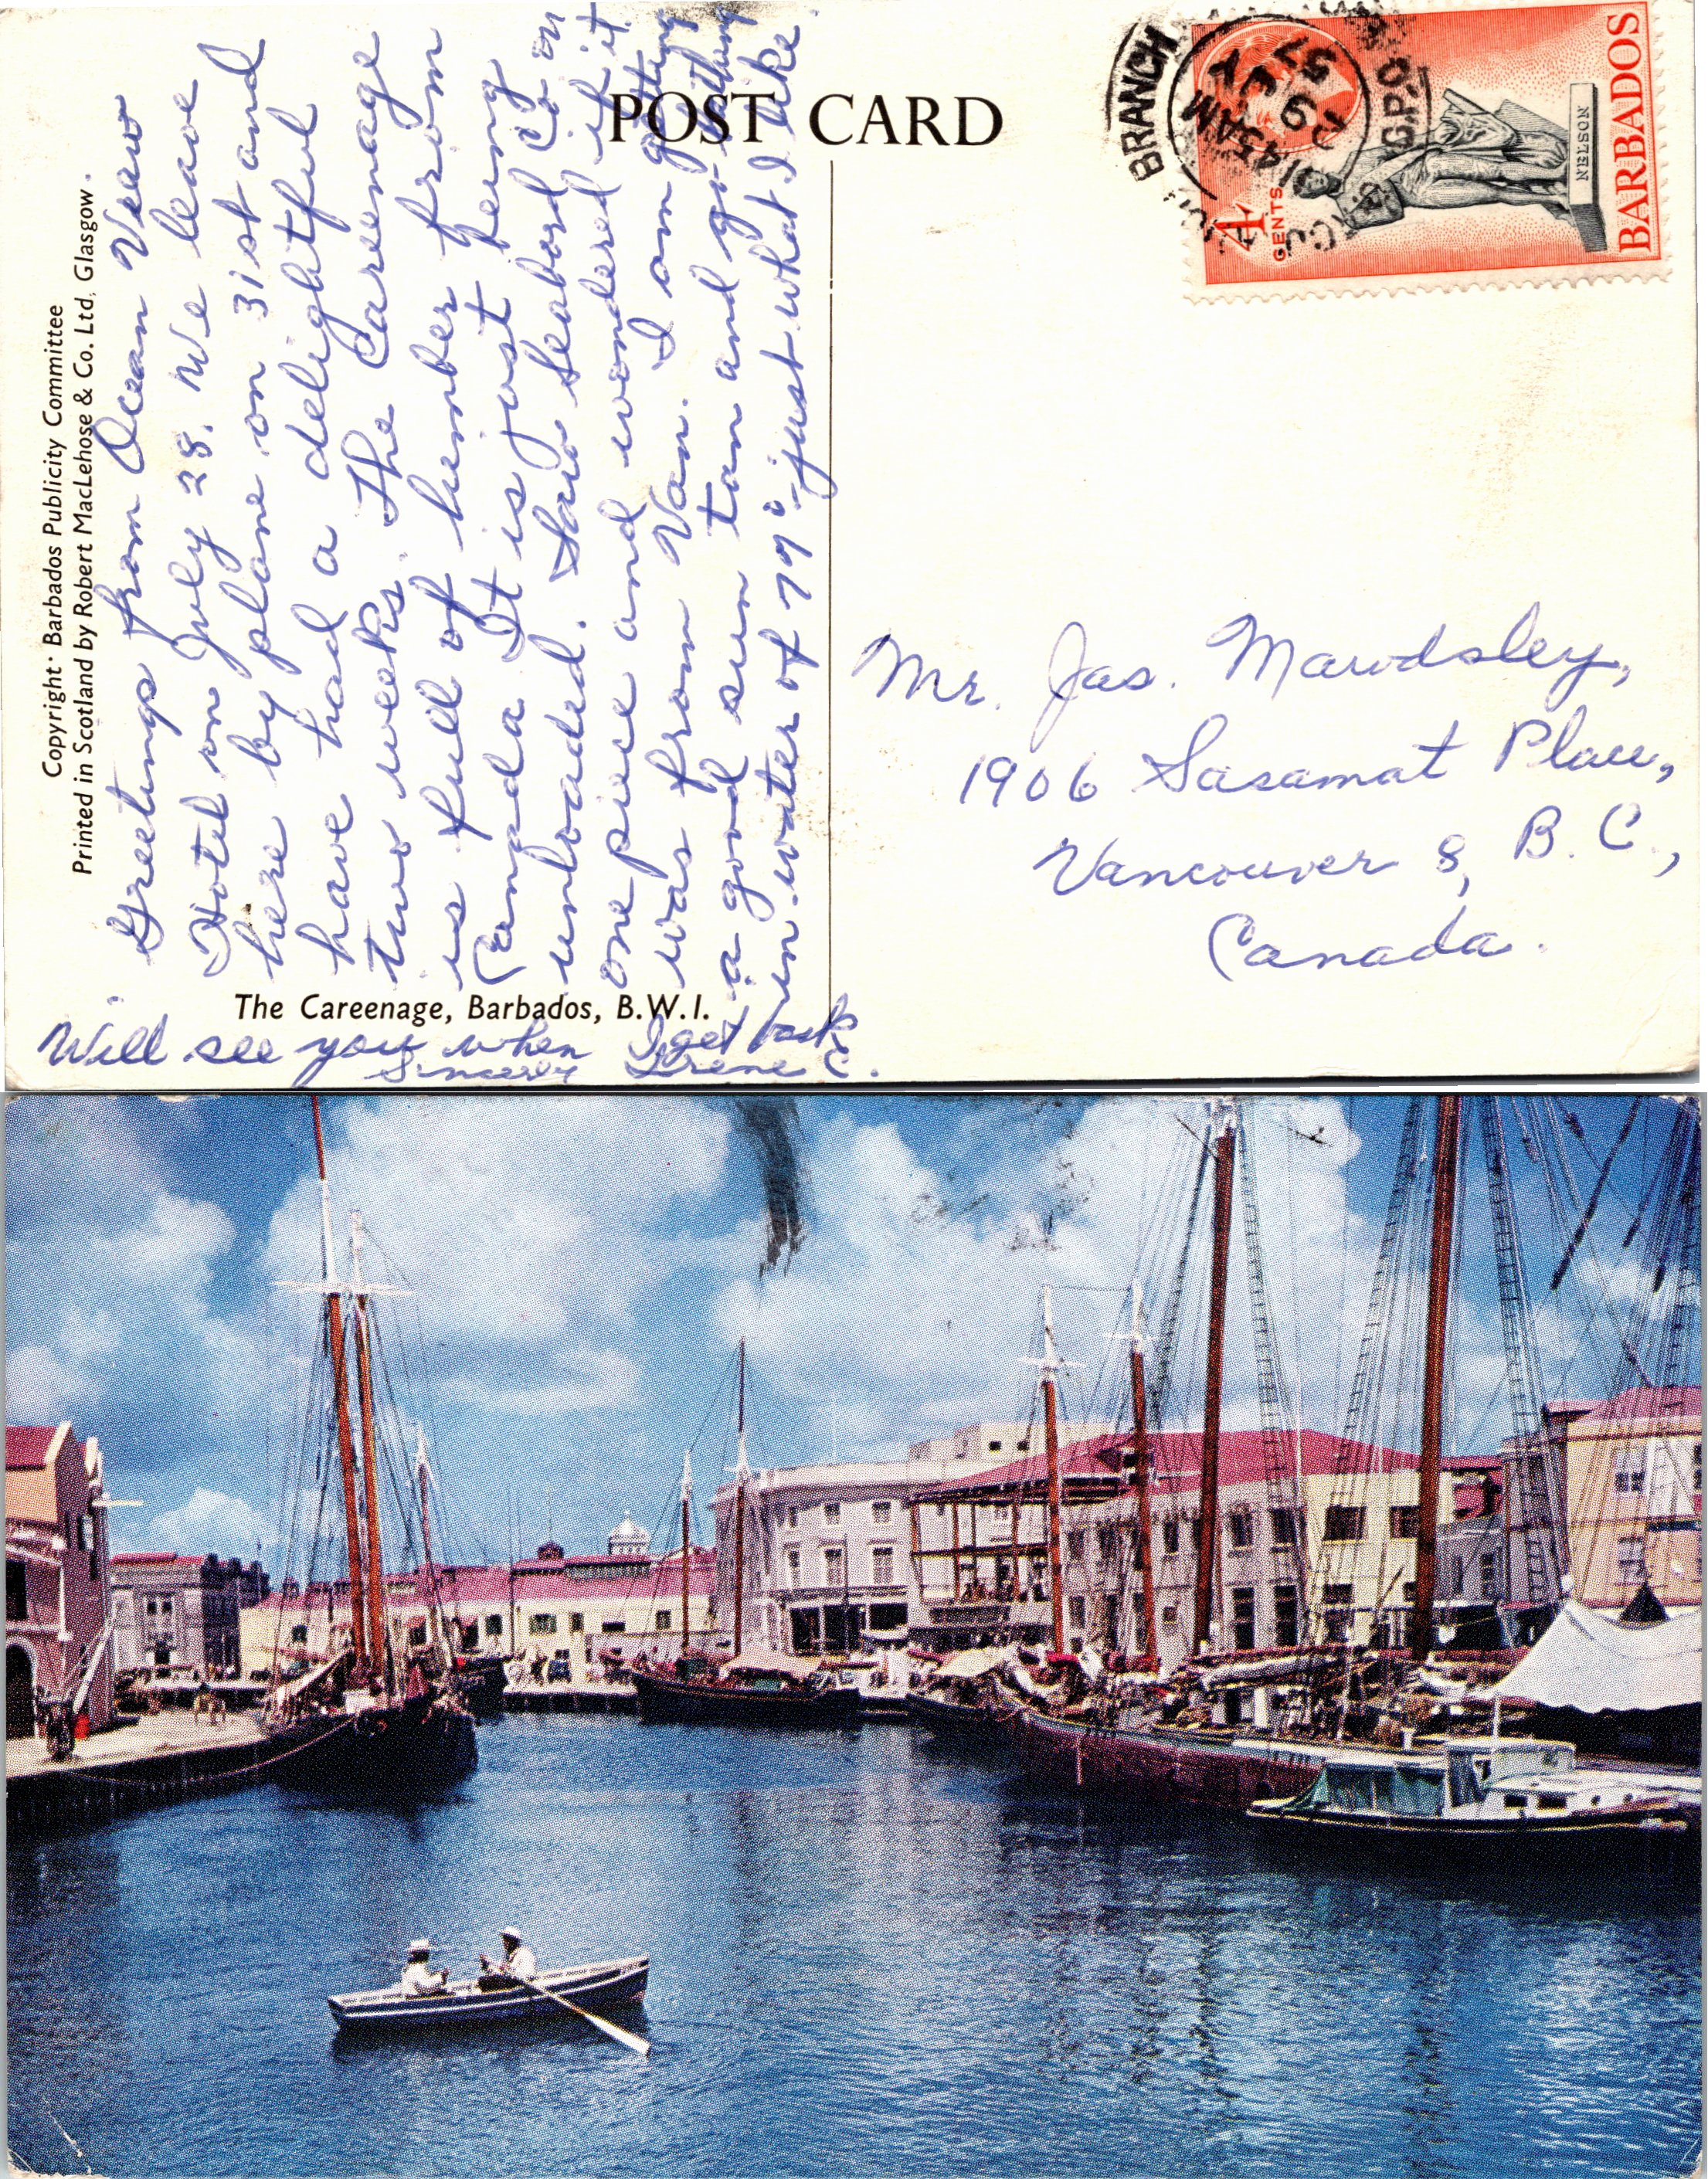 Copyright· Barbados Publicity Committee
Printed in Scotland by Robert MacLehose & Co. Ltd, Glasgow.
Greetings from Ocean View
Hotel on July 28. We leave
here by plane on 31st and
have had a delightful
two weeks. The Careenage
is full of lumber from
Canada. It is just being
unloaded. Saw Seabord Co on
one piece and wondered if it
was from Van. I am getting
a good sun tan and go bathing
in water of 79° - just what I like.
The Careenage, Barbados, B.W.I.
Will see you when I get back
Sincerely Irene C.
POST CARD
BRANCH
G.P.O.
9 45 AM
57
4 CENTS
NELSON
BARBADOS
Mr. Jas. Mawdsley,
1906 Sasamat Place,
Vancouver 8, B.C.,
Canada.